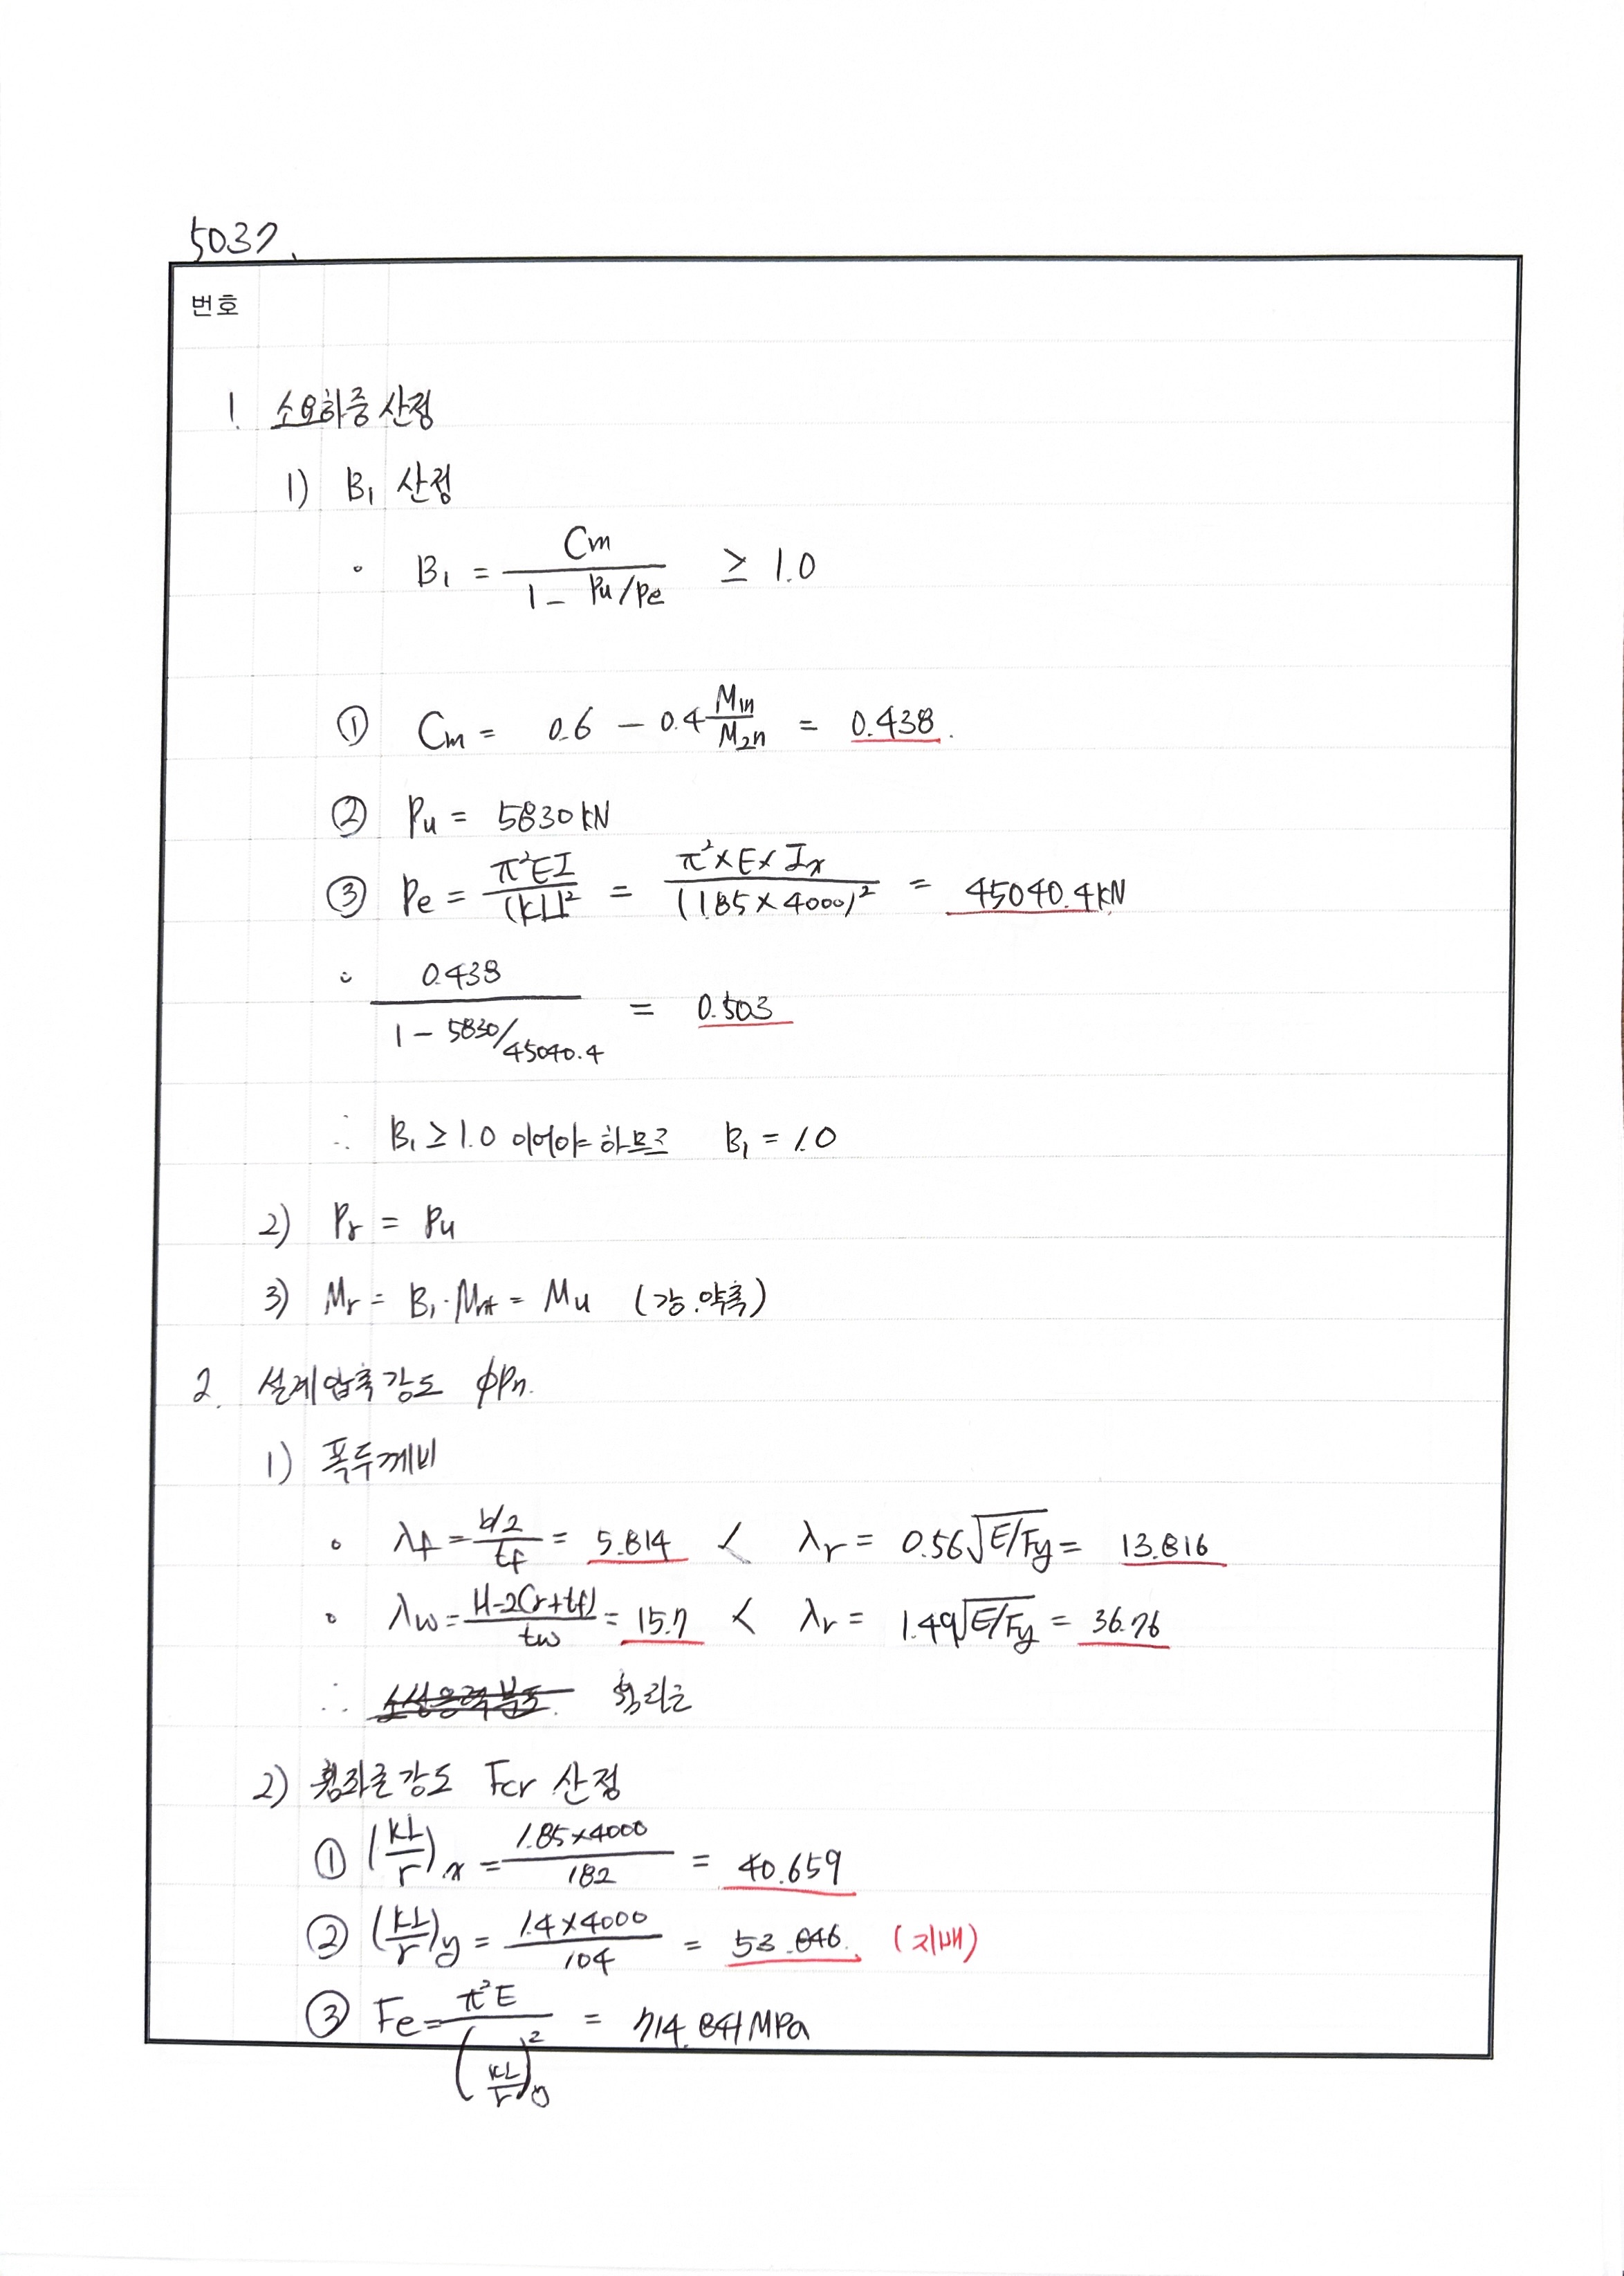 5037.
번호
1. 소요하중 산정
1) B₁ 산정
∘ B₁ = Cm / (1 - Pu/Pe) ≥ 1.0
① Cm = 0.6 - 0.4 M1n/M2n = 0.438.
② Pu = 5830 kN
③ Pe = π²EI / (KL)² = π²×E×Ix / (1.85×4000)² = 45040.4 kN
∘ 0.438 / (1 - 5830/45040.4) = 0.503
∴ B₁ ≥ 1.0 이어야 하므로 B₁ = 1.0
2) Pr = Pu
3) Mr = B₁·Mnt = Mu (강.약축)
2. 설계압축강도 ϕPn.
1) 폭두께비
∘ λf = (b/2) / tf = 5.814 < λr = 0.56√(E/Fy) = 13.816
∘ λw = (H-2(r+tf)) / tw = 15.7 < λr = 1.49√(E/Fy) = 36.76
∴
2) 휨좌굴강도 Fcr 산정
① (KL/r)x = 1.85×4000 / 182 = 40.659
② (KL/r)y = 1.4×4000 / 104 = 53.846. (지배)
③ Fe = π²E / (KL/r)²y = 714.841 MPa